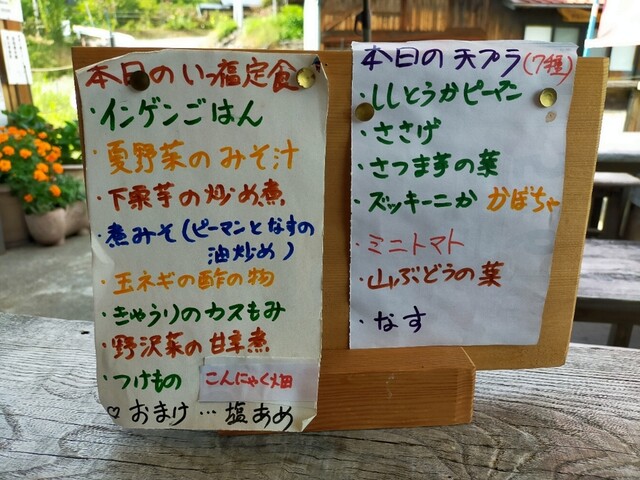 本日のいっ福定食
・インゲンごはん
・夏野菜のみそ汁
・下栗芋の炒め煮
・煮みそ(ピーマンとなすの
油炒め)
・玉ネギの酢の物
・きゅうりのカスもみ
・野沢菜の甘辛煮
・つけもの こんにゃく畑
♡おまけ…塩あめ
本日の天プラ(7種)
・ししとうかピーマン
・ささげ
・さつま芋の葉
・ズッキーニか かぼちゃ
・ミニトマト
・山ぶどうの葉
・なす